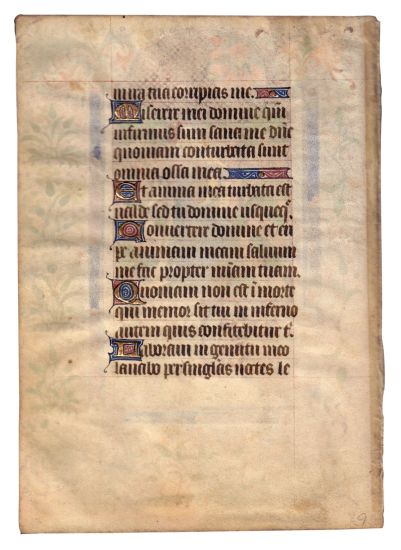 in ira tua corripias me.
Miserere mei domine qm̄
infirmus sum sana me dn̄e
quoniam conturbata sunt
omnia ossa mea.
Et anima mea turbata est
valde sed tu domine usquequo.
Convertere domine et eri
pe animam meam salvum
me fac propter mīam tuam.
Quoniam non est ī morte
qui memor sit tui in inferno
autem quis confitebitur t̄.
Laboravi in gemitu meo
lavabo per singulas noctes le
9